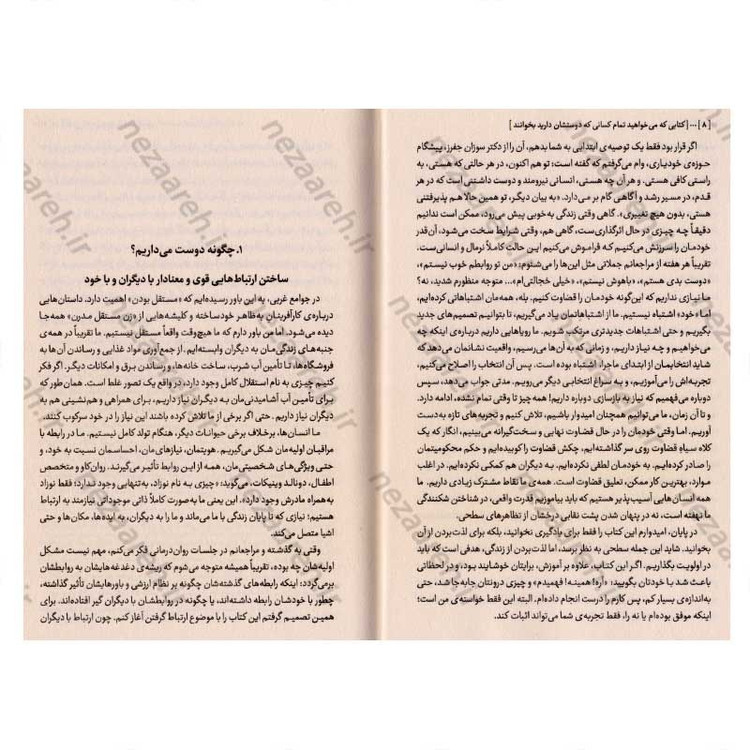 [۸] ... [کتابی که می‌خواهید تمام کسانی که دوستشان دارید بخوانند]
اگر قرار بود فقط یک توصیه‌ی ابتدایی به شما بدهم، آن را از دکتر سوزان جفرز، پیشگام
حوزه‌ی خودیاری، وام می‌گرفتم که گفته است: تو هم اکنون، در هر حالتی که هستی، به
راستی کافی هستی. و هر آن چه هستی، انسانی نیرومند و دوست داشتنی است که در هر
قدم، در مسیر رشد و آگاهی گام بر می‌دارد. «به بیان دیگر، تو همین حالا هم پذیرفتنی
هستی، بدون هیچ تغییری». گاهی وقتی زندگی به خوبی پیش می‌رود، ممکن است ندانیم
دقیقاً چه چیزی در حال اثرگذاری‌ست، گاهی هم، وقتی شرایط سخت می‌شود، آن‌قدر
خودمان را سرزنش می‌کنیم که فراموش می‌کنیم این حالت کاملاً نرمال و انسانی‌ست.
تقریباً هر هفته از مراجعانم جملاتی مثل این‌ها را می‌شنوم: «من تو روابطم خوب نیستم»،
«دوست بدی هستم»، «باهوش نیستم»، «خیلی خجالتی‌ام»... متوجه منظورم شدید، نه؟
ما نیازی نداریم که این‌گونه خودمان را قضاوت کنیم. بله، همه‌مان اشتباهاتی کرده‌ایم،
اما «خود» اشتباه نیستیم. ما از اشتباهاتمان یاد می‌گیریم، تا بتوانیم تصمیم‌های جدید
بگیریم و حتی اشتباهات جدیدتری مرتکب شویم. ما رویاهایی داریم درباره‌ی اینکه چه
می‌خواهیم و چه نیاز داریم، و زمانی که به آن‌ها می‌رسیم، واقعیت نشانمان می‌دهد که
شاید انتخابمان از ابتدای ماجرا، اشتباه بوده است. پس آن انتخاب را اصلاح می‌کنیم،
تجربه‌اش را می‌آموزیم، و به سراغ انتخابی دیگر می‌رویم. مدتی جواب می‌دهد، سپس
دوباره می‌فهمیم که نیاز به بازسازی دوباره داریم! همه چیز تا وقتی تمام نشده، ادامه دارد.
و تا آن زمان، ما می‌توانیم همچنان امیدوار باشیم، تلاش کنیم و تجربه‌های تازه به‌دست
آوریم. اما وقتی خودمان را در حال قضاوت نهایی و سخت‌گیرانه می‌بینیم، انگار که یک
کلاه سیاهِ قضاوت روی سر گذاشته‌ایم، چکش قضاوت را کوبیده‌ایم و حکم محکومیتمان
را صادر کرده‌ایم. نه به خودمان لطفی نکرده‌ایم، به دیگران هم کمکی نکرده‌ایم. در اغلب
موارد، بهترین کار ممکن، تعلیق قضاوت است. همه‌ی ما نقاط مشترک زیادی داریم. ما
همه انسان‌هایی آسیب‌پذیر هستیم که باید بیاموزیم قدرت واقعی، در شناختن شکنندگی
ما نهفته است، نه در پنهان شدن پشت نقابی درخشان از تظاهرهای سطحی.
در پایان، امیدوارم این کتاب را فقط برای یادگیری نخوانید، بلکه برای لذت بردن از آن
بخوانید. شاید این جمله سطحی به نظر برسد، اما لذت بردن از زندگی، هدفی است که باید
در اولویت بگذاریم. اگر این کتاب، علاوه بر آموزش، برایتان خوشایند بود، و در لحظاتی
باعث شد با خودتان بگویید: «آره! همینه! فهمیدم» و چیزی درونتان جابه‌جا شد، حتی
به‌اندازه‌ی بسیار کم، پس کارم را درست انجام داده‌ام. البته این فقط خواسته‌ی من است؛
اینکه موفق بوده‌ام یا نه را، فقط تجربه‌ی شما می‌تواند اثبات کند.
۱. چگونه دوست می‌داریم؟
ساختن ارتباط‌هایی قوی و معنادار با دیگران و با خود
در جوامع غربی، به این باور رسیده‌ایم که «مستقل بودن» اهمیت دارد. داستان‌هایی
درباره‌ی کارآفرینان به‌ظاهر خودساخته و کلیشه‌هایی از «زن مستقل مدرن» همه‌جا
دیده می‌شود. اما من باور دارم که ما هیچ‌وقت واقعاً مستقل نیستیم. ما تقریباً در همه‌ی
جنبه‌های زندگی‌مان به دیگران وابسته‌ایم. از جمع‌آوری مواد غذایی و رساندن آن‌ها به
فروشگاه‌ها، تا تأمین آب شرب، ساخت خانه‌ها، و رساندن برق و امکانات دیگر. اگر فکر
کنیم چیزی به نام استقلال کامل وجود دارد، در واقع یک تصور غلط است. همان‌طور که
برای تأمین آب آشامیدنی‌مان به دیگران نیاز داریم، برای همراهی و هم‌نشینی هم به
دیگران نیاز داریم. حتی اگر برخی از ما تلاش کرده باشند این نیاز را در خود سرکوب کنند.
ما انسان‌ها، برخلاف برخی حیوانات دیگر، هنگام تولد کامل نیستیم. ما در رابطه با
مراقبان اولیه‌مان شکل می‌گیریم. هویتمان، نیازهای‌مان، احساسمان نسبت به خود، و
حتی ویژگی‌های شخصیتی‌مان، همه از این روابط تأثیر می‌گیرند. روان‌کاو و متخصص
اطفال، دونالد وینیکات، می‌گوید: «چیزی به نام نوزاد، به‌تنهایی وجود ندارد؛ فقط نوزاد
به همراه مادرش وجود دارد». این یعنی ما به‌صورت کاملاً ذاتی موجوداتی نیازمند به ارتباط
هستیم؛ نیازی که تا پایان زندگی با ما می‌ماند و ما را به دیگران، به ایده‌ها، مکان‌ها و حتی
اشیا متصل می‌کند.
وقتی به گذشته و مراجعانم در جلسات روان‌درمانی فکر می‌کنم، مهم نیست مشکل
اولیه‌شان چه بوده، تقریباً همیشه متوجه می‌شوم که ریشه‌ی دغدغه‌هایشان به روابطشان
برمی‌گردد: اینکه رابطه‌های گذشته‌شان چگونه بر نظام ارزشی و باورهایشان تأثیر گذاشته،
چطور با خودشان رابطه داشته‌اند، یا چگونه در روابطشان با دیگران گیر افتاده‌اند. برای
همین تصمیم گرفتم این کتاب را با موضوع ارتباط گرفتن آغاز کنم. چون ارتباط با دیگران
nezaareh.ir
nezaareh.ir
nezaareh.ir
nezaareh.ir
nezaareh.ir